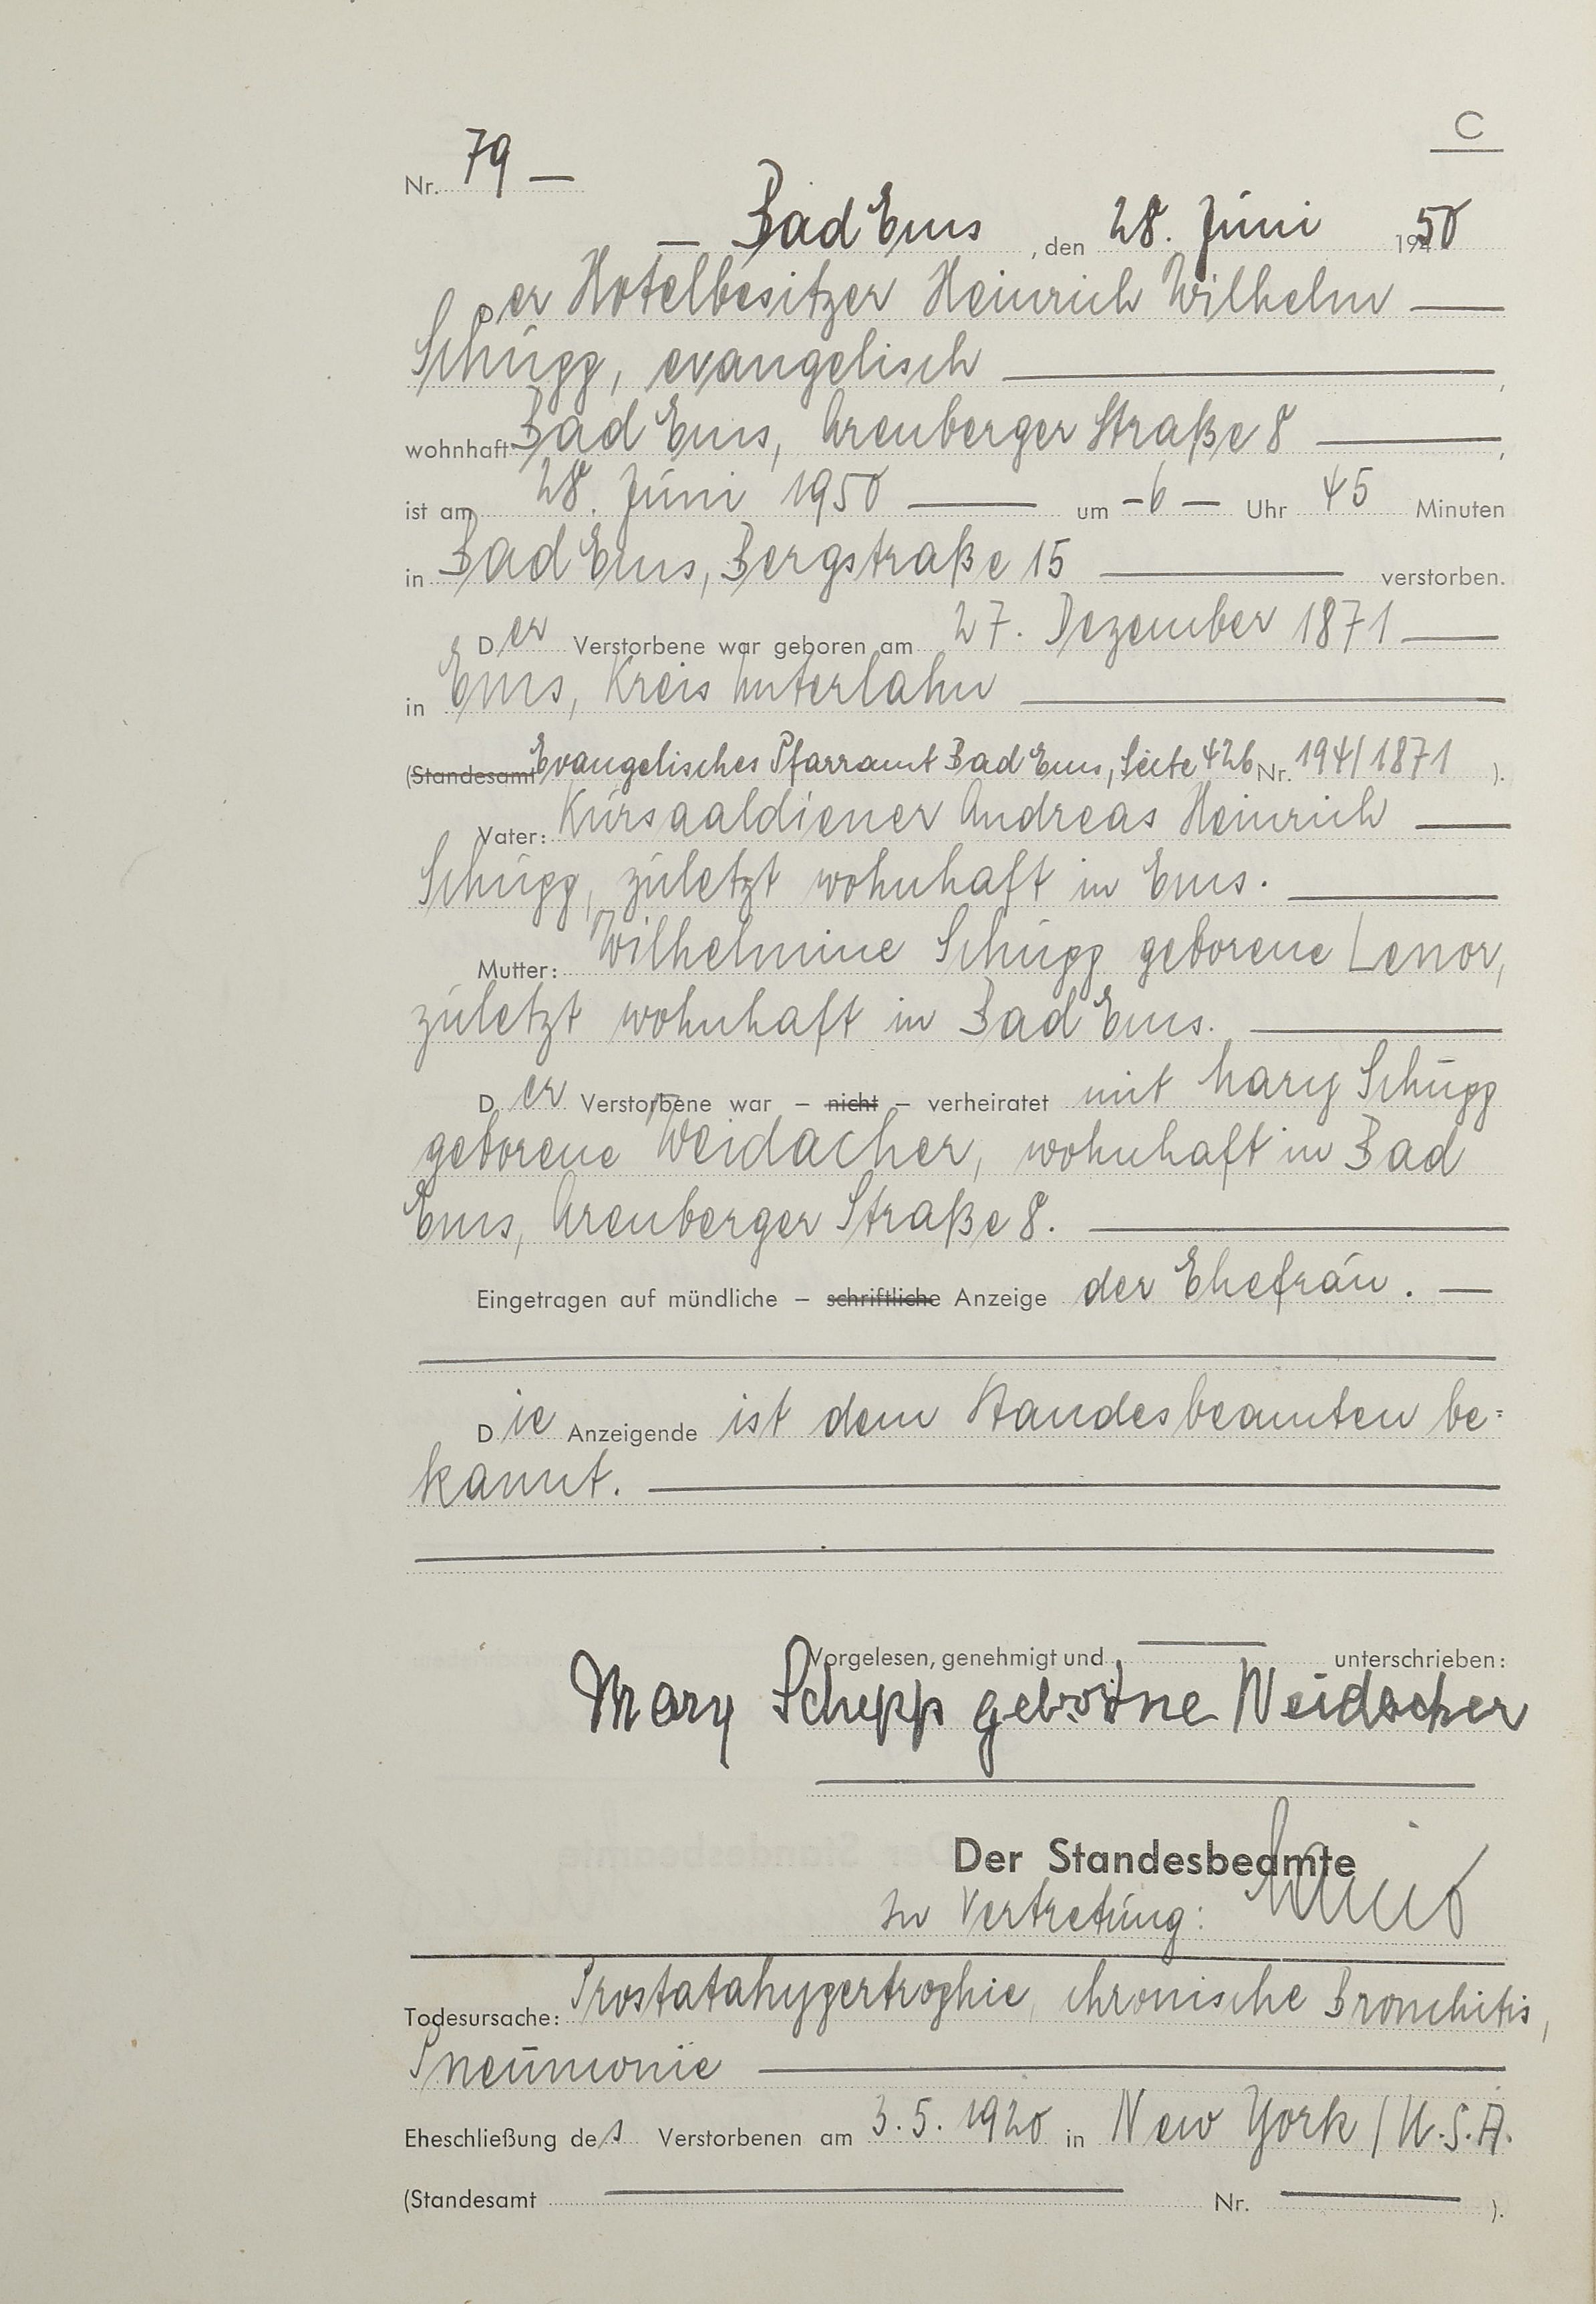 C
Nr. 79 —
— Bad Ems, den 28. Juni 1950
Der Hotelbesitzer Heinrich Wilhelm —
Schupp, evangelisch —,
wohnhaft Bad Ems, Arenberger Straße 8 —,
ist am 28. Juni 1950 — um - 6 — Uhr 45 Minuten
in Bad Ems, Bergstraße 15 — verstorben.
Der Verstorbene war geboren am 27. Dezember 1871 —
in Ems, Kreis Unterlahn —
(Standesamt Evangelisches Pfarramt Bad Ems, Seite 426 Nr. 194/1871 ).
Vater: Kursaaldiener Andreas Heinrich —
Schupp, zuletzt wohnhaft in Ems. —
Mutter: Wilhelmine Schupp geborene Lenor,
zuletzt wohnhaft in Bad Ems. —
Der Verstorbene war – nicht – verheiratet mit Mary Schupp
geborene Weidacher, wohnhaft in Bad
Ems, Arenberger Straße 8. —
Eingetragen auf mündliche – schriftliche Anzeige der Ehefrau. —
Die Anzeigende ist dem Standesbeamten be=
kannt. —
Vorgelesen, genehmigt und — unterschrieben:
Mary Schupp geborene Weidacher
Der Standesbeamte
In Vertretung:
Todesursache: Prostatahypertrophie, chronische Bronchitis,
Pneumonie —
Eheschließung des Verstorbenen am 3.5.1920 in New York / U.S.A.
(Standesamt — Nr. — ).